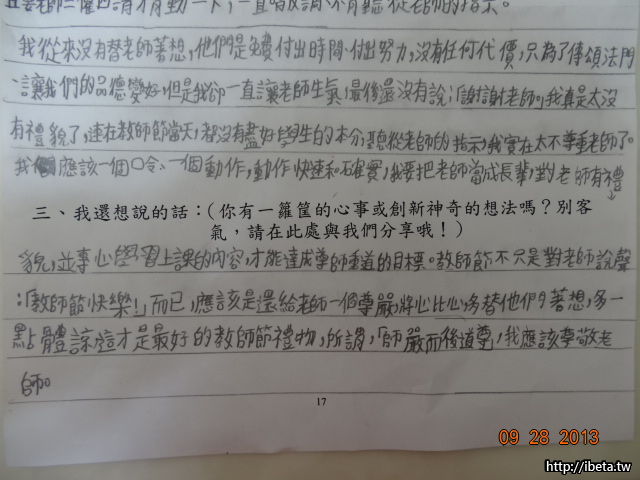 老師三催四請才有動一下,一直唱反調、不肯聽從老師的指示。
我從來沒有替老師著想,他們是免費付出時間、付出努力,沒有任何代價,只為了傳頌法門
讓我們的品德變好,但是我卻一直讓老師生氣,最後還沒有說:「謝謝老師。」我真是太沒
有禮貌了,連在教師節當天,都沒有盡好學生的本分,聽從老師的指示,我實在太不尊重老師了。
我應該一個口令、一個動作,動作快速和確實,我要把老師當成長輩,對老師有禮
三、我還想說的話:(你有一籮筐的心事或創新神奇的想法嗎?別客
氣,請在此處與我們分享哦!)
貌,並專心學習上課的內容,才能達成尊師重道的目標。教師節不只是對老師說聲
:「教師節快樂!」而已,應該是還給老師一個尊嚴,將心比心,多替他們著想,多一
點體諒,這才是最好的教師節禮物,所謂,「師嚴而後道尊」,我應該尊敬老
師。
17
09 28 2013
http://ibeta.tw